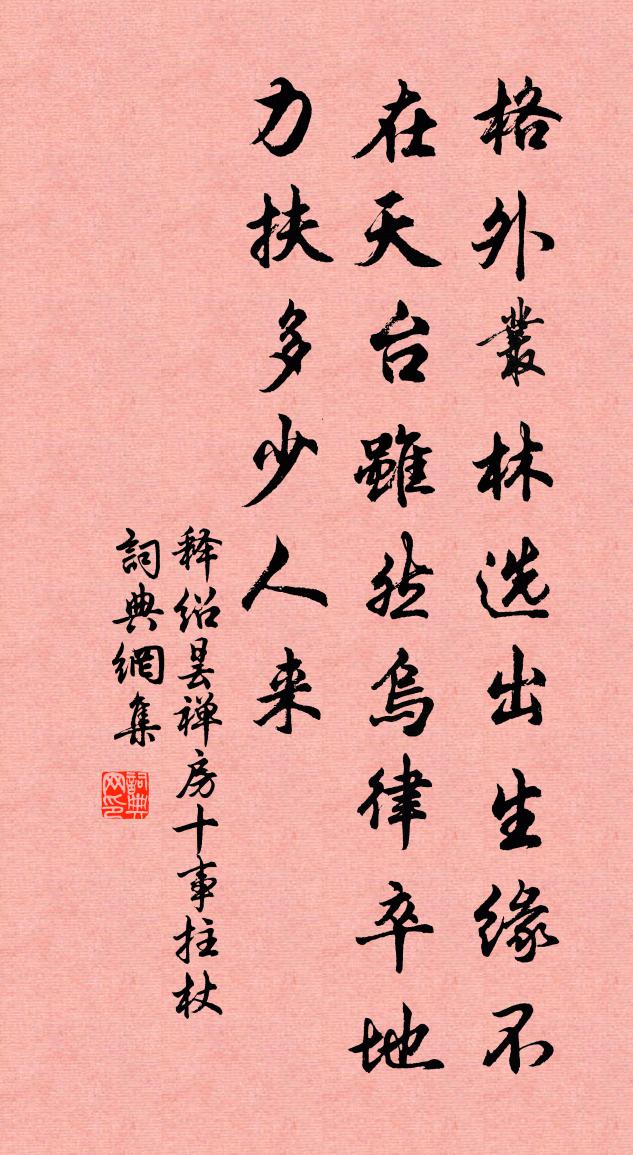 格外叢林选出生缘不
在天台雖然烏律卒地
力扶多少人来
释绍昙禅房十事拄杖
詞典網集
詞典网印